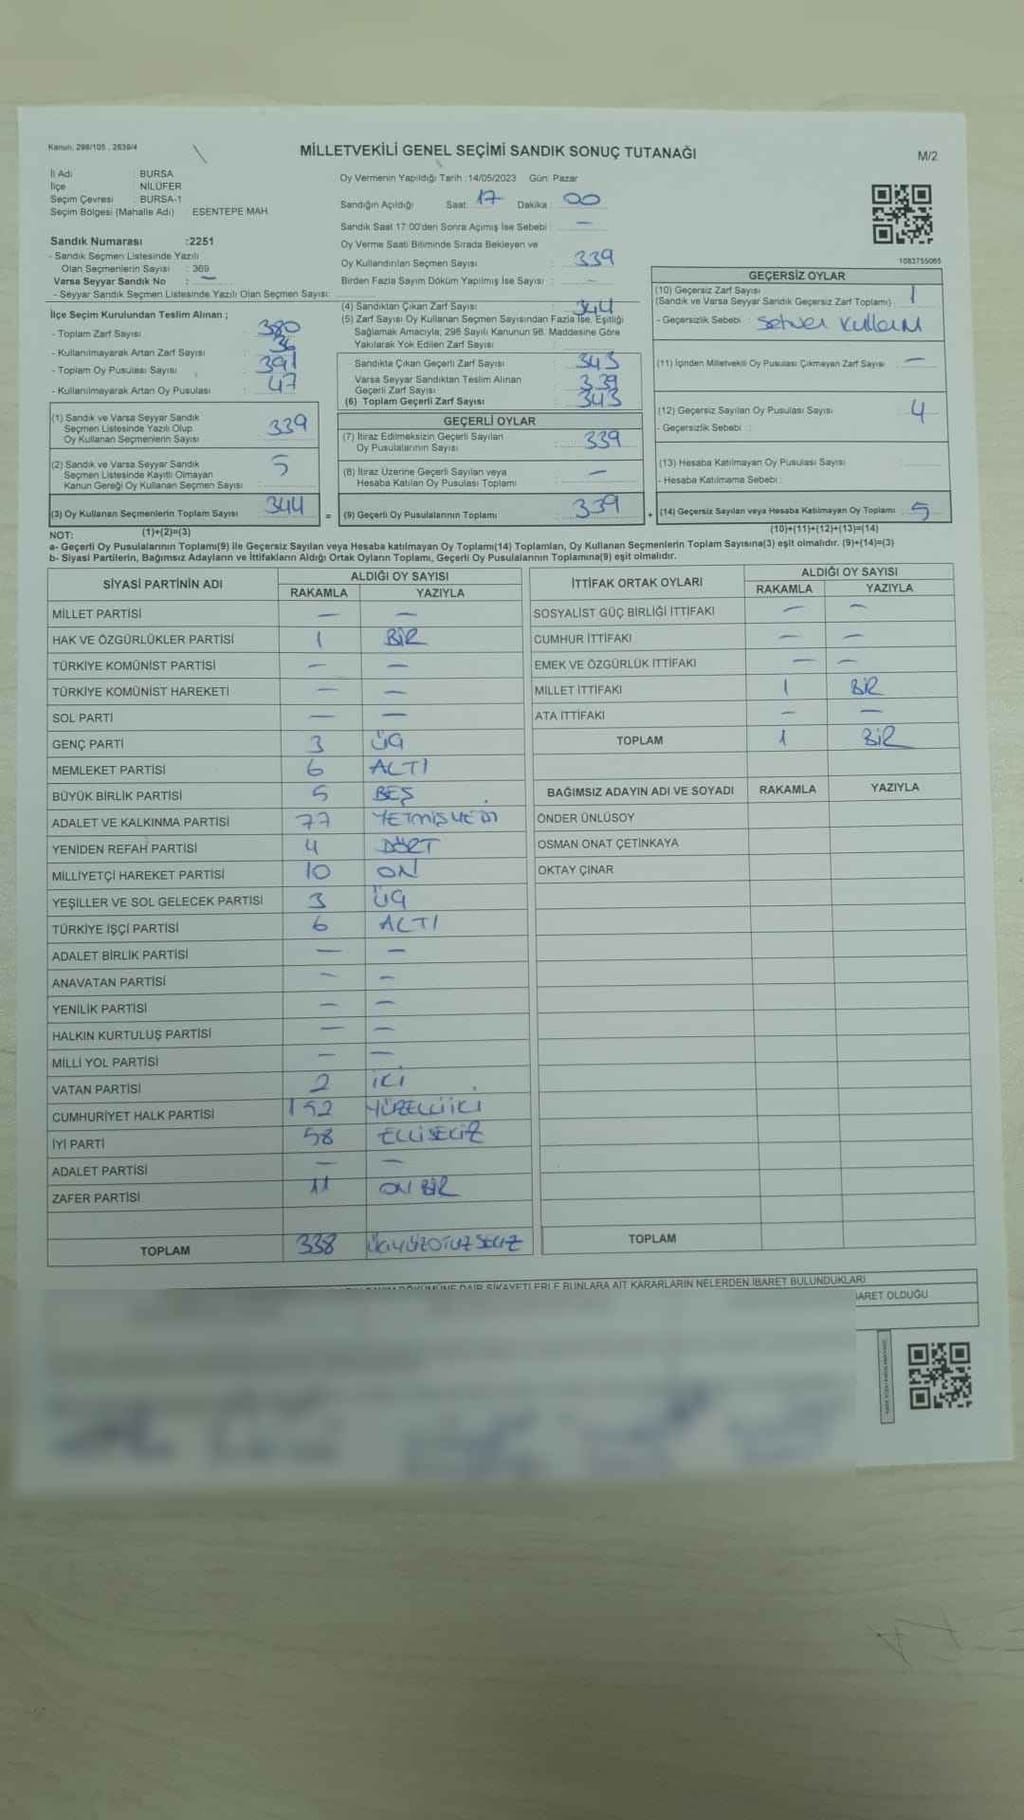 Kanun: 298/105 , 2839/4
MİLLETVEKİLİ GENEL SEÇİMİ SANDIK SONUÇ TUTANAĞI
M/2
İl Adı : BURSA
İlçe : NİLÜFER
Seçim Çevresi : BURSA-1
Seçim Bölgesi (Mahalle Adı) ESENTEPE MAH.
Sandık Numarası :2251
- Sandık Seçmen Listesinde Yazılı
Olan Seçmenlerin Sayısı : 369
Varsa Seyyar Sandık No : —
- Seyyar Sandık Seçmen Listesinde Yazılı Olan Seçmen Sayısı:
İlçe Seçim Kurulundan Teslim Alınan ;
- Toplam Zarf Sayısı 380
- Kullanılmayarak Artan Zarf Sayısı 36
- Toplam Oy Pusulası Sayısı 391
- Kullanılmayarak Artan Oy Pusulası 47
(1) Sandık ve Varsa Seyyar Sandık
Seçmen Listesinde Yazılı Olup
Oy Kullanan Seçmenlerin Sayısı 339
(2) Sandık ve Varsa Seyyar Sandık
Seçmen Listesinde Kayıtlı Olmayan
Kanun Gereği Oy Kullanan Seçmen Sayısı 5
(3) Oy Kullanan Seçmenlerin Toplam Sayısı 344
(1)+(2)=(3)
Oy Vermenin Yapıldığı Tarih :14/05/2023 Gün: Pazar
Sandığın Açıldığı Saat: 17 Dakika : 00
Sandık Saat 17:00'den Sonra Açılmış İse Sebebi : —
Oy Verme Saati Bitiminde Sırada Bekleyen ve
Oy Kullandırılan Seçmen Sayısı : 339
Birden Fazla Sayım Döküm Yapılmış İse Sayısı : —
(4) Sandıktan Çıkan Zarf Sayısı : 344
(5) Zarf Sayısı Oy Kullanan Seçmen Sayısından Fazla İse, Eşitliği
Sağlamak Amacıyla; 298 Sayılı Kanunun 98. Maddesine Göre
Yakılarak Yok Edilen Zarf Sayısı
Sandıkta Çıkan Geçerli Zarf Sayısı 343
Varsa Seyyar Sandıktan Teslim Alınan
Geçerli Zarf Sayısı 339
(6) Toplam Geçerli Zarf Sayısı 343
GEÇERLİ OYLAR
(7) İtiraz Edilmeksizin Geçerli Sayılan
Oy Pusulalarının Sayısı 339
(8) İtiraz Üzerine Geçerli Sayılan veya
Hesaba Katılan Oy Pusulası Toplamı —
= (9) Geçerli Oy Pusulalarının Toplamı 339
1083755065
GEÇERSİZ OYLAR
(10) Geçersiz Zarf Sayısı
(Sandık ve Varsa Seyyar Sandık Geçersiz Zarf Toplamı) 1
- Geçersizlik Sebebi :
(11) İçinden Milletvekili Oy Pusulası Çıkmayan Zarf Sayısı —
(12) Geçersiz Sayılan Oy Pusulası Sayısı 4
- Geçersizlik Sebebi :
(13) Hesaba Katılmayan Oy Pusulası Sayısı
- Hesaba Katılmama Sebebi :
+ (14) Geçersiz Sayılan veya Hesaba Katılmayan Oy Toplamı 5
(10)+(11)+(12)+(13)=(14)
NOT:
a- Geçerli Oy Pusulalarının Toplamı(9) ile Geçersiz Sayılan veya Hesaba katılmayan Oy Toplamı(14) Toplamları, Oy Kullanan Seçmenlerin Toplam Sayısına(3) eşit olmalıdır. (9)+(14)=(3)
b- Siyasi Partilerin, Bağımsız Adayların ve İttifakların Aldığı Ortak Oyların Toplamı, Geçerli Oy Pusulalarının Toplamına(9) eşit olmalıdır.
SİYASİ PARTİNİN ADI ALDIĞI OY SAYISI
RAKAMLA YAZIYLA
MİLLET PARTİSİ — —
HAK VE ÖZGÜRLÜKLER PARTİSİ 1 BİR
TÜRKİYE KOMÜNİST PARTİSİ — —
TÜRKİYE KOMÜNİST HAREKETİ — —
SOL PARTİ — —
GENÇ PARTİ 3 ÜÇ
MEMLEKET PARTİSİ 6 ALTI
BÜYÜK BİRLİK PARTİSİ 5 BEŞ
ADALET VE KALKINMA PARTİSİ 77 YETMİŞYEDİ
YENİDEN REFAH PARTİSİ 4 DÖRT
MİLLİYETÇİ HAREKET PARTİSİ 10 ON
YEŞİLLER VE SOL GELECEK PARTİSİ 3 ÜÇ
TÜRKİYE İŞÇİ PARTİSİ 6 ALTI
ADALET BİRLİK PARTİSİ — —
ANAVATAN PARTİSİ — —
YENİLİK PARTİSİ — —
HALKIN KURTULUŞ PARTİSİ — —
MİLLİ YOL PARTİSİ — —
VATAN PARTİSİ 2 İKİ
CUMHURİYET HALK PARTİSİ 152 YÜZELLİİKİ
İYİ PARTİ 58 ELLİSEKİZ
ADALET PARTİSİ — —
ZAFER PARTİSİ 11 ON BİR
TOPLAM 338 ÜÇYÜZOTUZSEKİZ
İTTİFAK ORTAK OYLARI ALDIĞI OY SAYISI
RAKAMLA YAZIYLA
SOSYALİST GÜÇ BİRLİĞİ İTTİFAKI — —
CUMHUR İTTİFAKI — —
EMEK VE ÖZGÜRLÜK İTTİFAKI — —
MİLLET İTTİFAKI 1 BİR
ATA İTTİFAKI — —
TOPLAM 1 BİR
BAĞIMSIZ ADAYIN ADI VE SOYADI RAKAMLA YAZIYLA
ÖNDER ÜNLÜSOY
OSMAN ONAT ÇETİNKAYA
OKTAY ÇINAR
TOPLAM
DÖKÜMÜNE DAİR ŞİKAYETLERLE BUNLARA AİT KARARLARIN NELERDEN İBARET BULUNDUKLARI
OLDUĞU